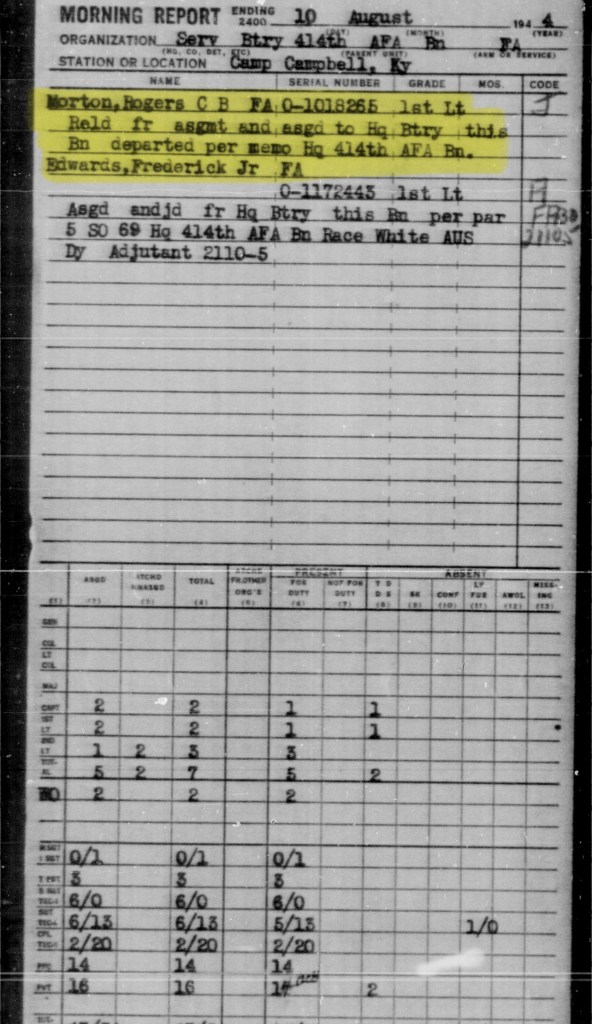 MORNING REPORT ENDING 2400 10 August 194 4
(DAY) (MONTH) (YEAR)
ORGANIZATION Serv Btry 414th AFA Bn FA
(HQ, CO, DET, ETC) (PARENT UNIT) (ARM OR SERVICE)
STATION OR LOCATION Camp Campbell, Ky
NAME SERIAL NUMBER GRADE MOS. CODE
Morton,Rogers C B FA 0-1018265 1st Lt J
Reld fr asgmt and asgd to Hq Btry this
Bn departed per memo Hq 414th AFA Bn.
Edwards,Frederick Jr FA
0-1172443 1st Lt
Asgd andjd fr Hq Btry this Bn per par
5 SO 69 Hq 414th AFA Bn Race White AUS
Dy Adjutant 2110-5 21105
PRESENT ABSENT
ASGD TOTAL FOR DUTY NOT FOR DUTY T D D S SK CONF AWOL MISS-ING
(1) (2) (3) (4) (5) (6) (7) (8) (9) (10) (11) (12) (13)
GEN
COL
LT COL
MAJ
CAPT 2 2 1 1
1ST LT 2 2 1 1
2ND LT 1 2 3 3
TOT-AL 5 2 7 5 2
2 2 2
1 SGT 0/1 0/1 0/1
3 3 3
6/0 6/0 6/0
6/13 6/13 5/13 1/0
CPL 2/20 2/20 2/20
PFC 14 14 14
PVT 16 16 14 2